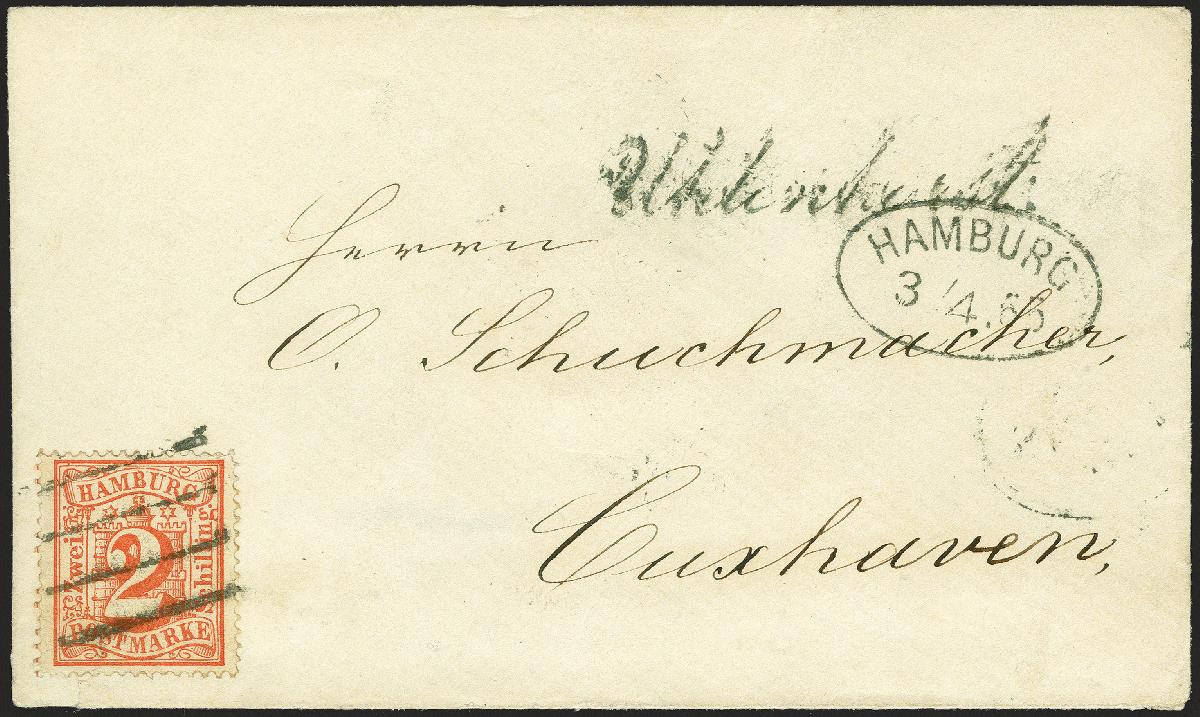 Uhlenhorst.
HAMBURG
3/4.65
Herrn
O. Schuchmacher,
Cuxhaven,
HAMBURG
Zwei
Schilling.
2
POSTMARKE